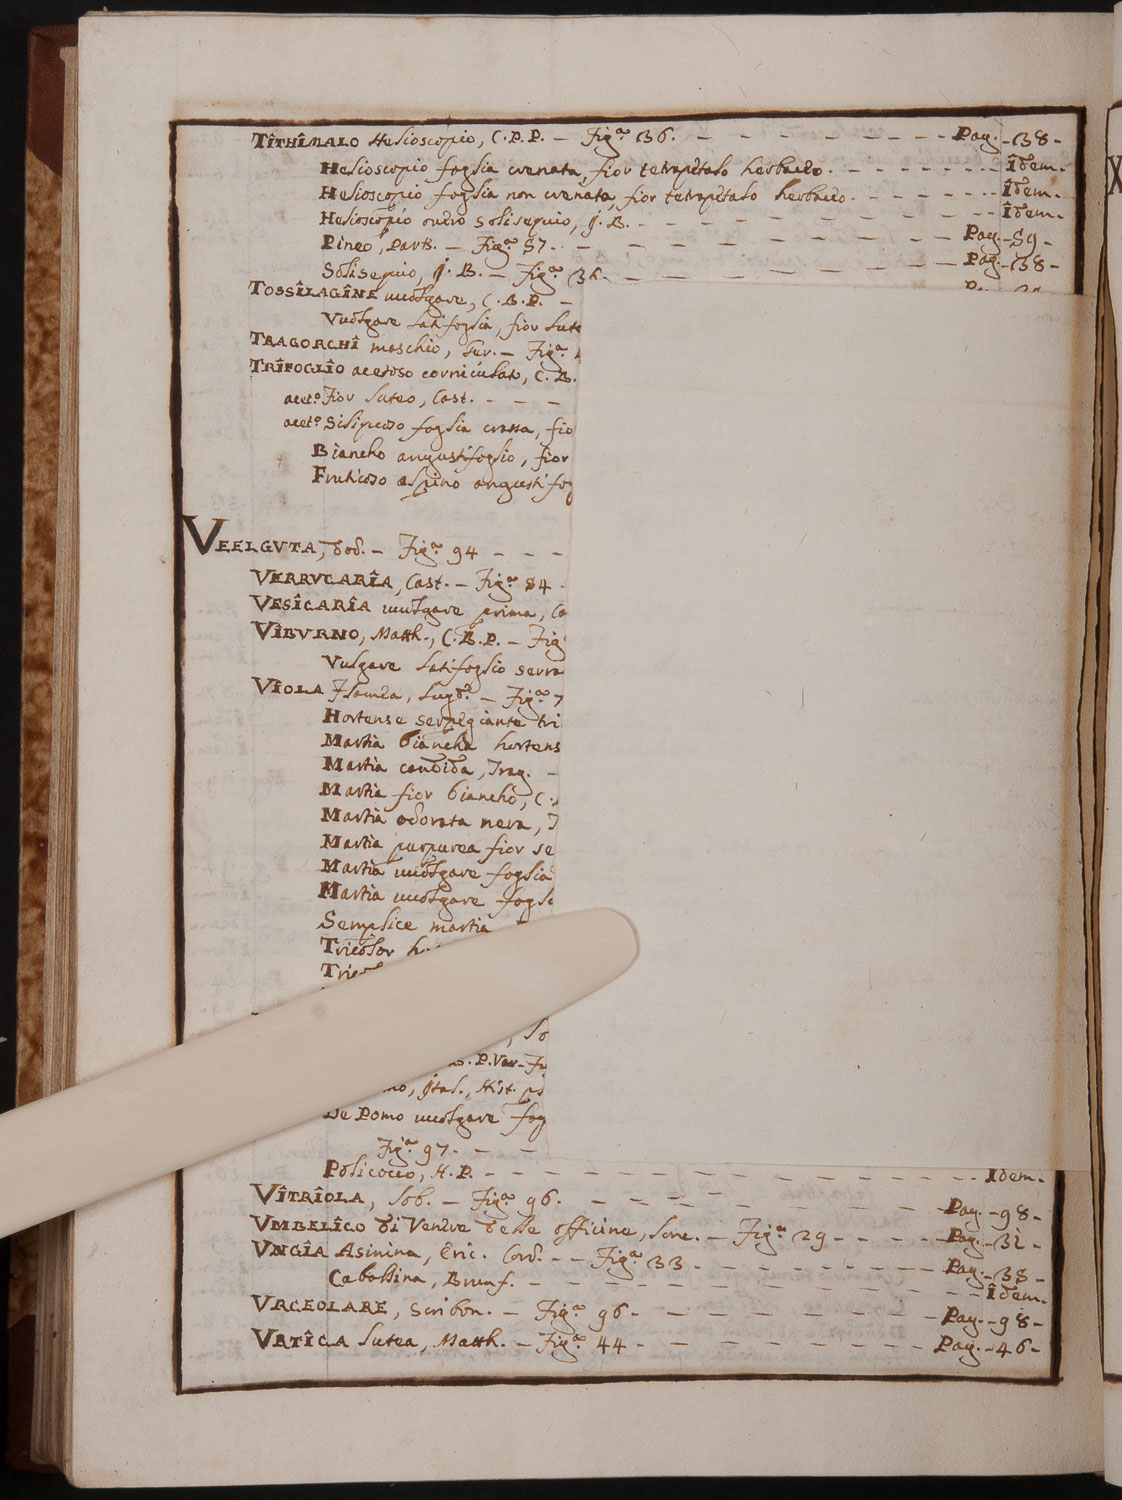 TÎTHÎMALO Helioscopio, C.B.P. — Fig.ª 136. — — — Pag. - 138 -
Helioscopio foglia crenata, fior tetrapetalo herbaceo. - - - Îdem.
Helioscopio foglia non crenata, fior tetrapetalo herbaceo. - - - Îdem.
Helioscopio overo solisequio, J.B. - - - Îdem.
Pineo, - Fig.ª 57. - - - Pag. - 59 -
Solisequio, J.B. — Fig.ª 136. - - - Pag. - 138 -
TOSSÎLAGÎNE vuolgare, C.B.P. —
Vuolgare latifoglia, fior lute
TRAGORCHÎ maschio, Ger. — Fig.ª
TRÎFOGLÎO acetoso corniculato, C.B.
acet.º Fior luteo, Cast. - - -
acet.º Siliquoso foglia crassa, fio
Biancho angustifoglio, fior
Fruticoso espino angustifog
VEELGVTA, Dod. — Fig.ª 94 - - -
VERRVCARÎA, Cast. — Fig.ª 84 -
VESÎCARÎA vuolgare prima, Ca
VÎBVRNO, Matth., C.B.P. — Fig
Vulgare latifoglio serra
VÎOLA Flamea, Lugd.ª — Fig.ª 7
Hortense serpegiante tri
Martia biancha hortens
Martia candida, Trag. —
Martia fior biancho, C.
Martia odorata nera, J
Martia purpurea fior se
Martia vuolgare foglia
Martia vuolgare fogli
Semplice martia
Tricolor h
Tric
, Lo
B.P. Var. - Fi
no, Ital., Hist.
De Pomo vuolgare fog
Fig.ª 97. - - -
Policocco, H.P. - - - Idem.
VÎTRÎOLA, Lob. — Fig.ª 96. - - - Pag. - 98 -
VMBELÎCO di Venere delle officine, Lone. — Fig.ª 29 - - - Pag. - 31 -
VNGÎA Asinina, Eric. Cord. - - Fig.ª 33 - - - Pag. - 38 -
Cabollina, Brunf. - - - Îdem.
VRCEOLARE, Scribon. — Fig.ª 96 - - - Pag. - 98 -
VRTÎCA lutea, Matth. — Fig.ª 44 - - - Pag. - 46 -